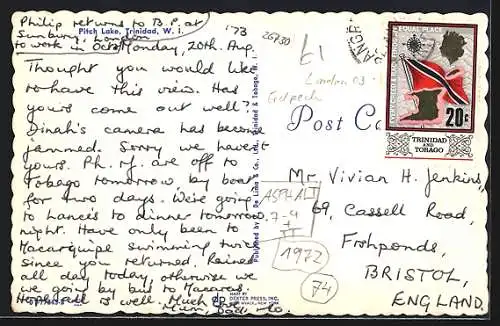 Philip returns to B.P. at
Sunbury, London
to work in Oct.
Pitch Lake, Trinidad, W. I.
'73
Monday, 20th. Aug.
Thought you would like
to have this view. Has
yours come out well?
Dinah's camera has become
jammed. Sorry we haven't
yours. Ph. & J. are off to
Tobago tomorrow by boat
for two days. We're going
to Lance's to dinner tomorrow
night. Have only been to
Macqueripe swimming twice
since you returned. Rained
all day today, otherwise we
we going by bus to Maracas.
is well. Much love
Mum, Dad,
Published by De Lima & Co., Ltd., Trinidad & Tobago, W. I.
MADE BY
DEXTER PRESS, INC.
WEST NYACK, NEW YORK
26730
£1
London 03
Post Ca
EQUAL PLACE
20c
TRINIDAD
AND
TOBAGO
ASPHALT
7-9
1972
74
Mr. Vivian H. Jenkins,
69, Cassell Road,
Fishponds,
BRISTOL,
ENGLAND.